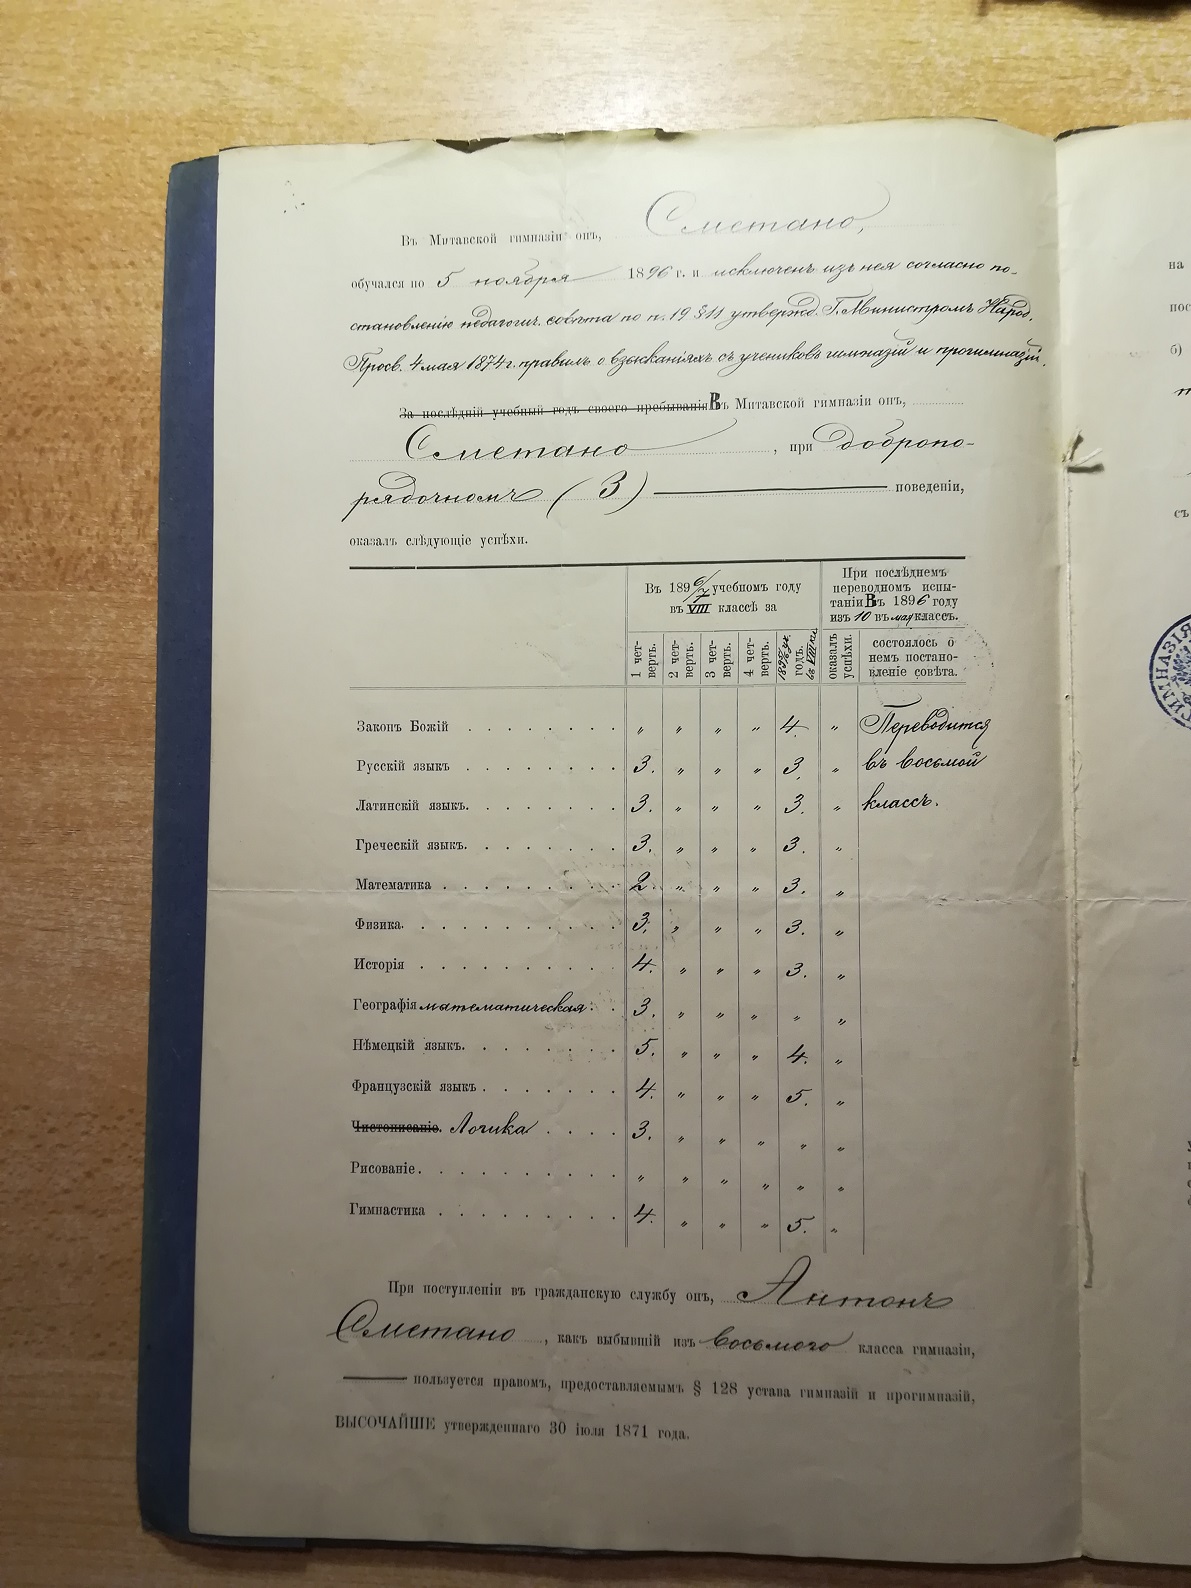 Въ Митавской гимназіи онъ, Сметано,
обучался по 5 ноября 1896 г. и исключенъ изъ нея согласно по-
становленію педагогич. совѣта по п. 19 § 11 утвержд. Г. Министромъ Народ.
Просв. 4 мая 1874 г. правилъ о взысканіяхъ съ учениковъ гимназій и прогимназій.
За послѣдній учебный годъ своего пребыванія Въ Митавской гимназіи онъ,
Сметано, при добропо-
рядочномъ (3) поведеніи,
оказалъ слѣдующіе успѣхи.
Въ 1896/7 учебномъ году
въ VIII классѣ за
При послѣднемъ
переводномъ испы-
таніи Въ 1896 году
изъ 10 въ мая классъ.
1 чет-
верть.
2 чет-
верть.
3 чет-
верть.
4 чет-
верть.
годъ.
оказалъ
успѣхи.
состоялось о
немъ постано-
вленіе совѣта.
Законъ Божій . . . . . . . . „ „ „ „ 4. „ Переводится
Русскій языкъ . . . . . . . . 3. „ „ „ 3. „ въ восьмой
Латинскій языкъ. . . . . . . . 3. „ „ „ 3. „ классъ.
Греческій языкъ. . . . . . . . 3. „ „ „ 3. „
Математика . . . . . . . . . 2. „ „ „ 3. „
Физика. . . . . . . . . . . 3. „ „ „ 3. „
Исторія . . . . . . . . . . 4. „ „ „ 3. „
Географія математическая. . 3. „ „ „ „ „
Нѣмецкій языкъ. . . . . . . . 5. „ „ „ 4. „
Французскій языкъ . . . . . . . 4. „ „ „ 5. „
Чистописаніе. Логика . . . . 3. „ „ „ „ „
Рисованіе. . . . . . . . . . „ „ „ „ „ „
Гимнастика . . . . . . . . . 4. „ „ „ 5. „
При поступленіи въ гражданскую службу онъ, Антонъ
Сметано, какъ выбывшій изъ восьмого класса гимназіи,
пользуется правомъ, предоставляемымъ § 128 устава гимназій и прогимназій,
ВЫСОЧАЙШЕ утвержденнаго 30 іюля 1871 года.
на
пос
б)
съ